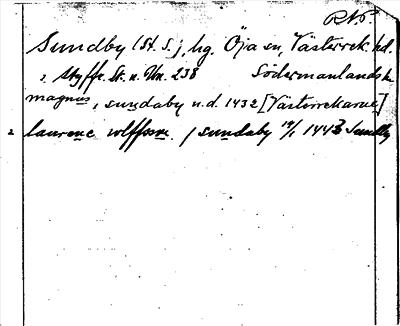 RAP.
Sundby (St. S.), hg. Öja sn, Västerrek. hd.
, Styffe Sk. u. Un. 238 Södermanlands l.
magnus, sundaby n.d. 1432 [Västerrekarne]
2 laurenc vlffson. / sundaby 19/1 1443 Sundby